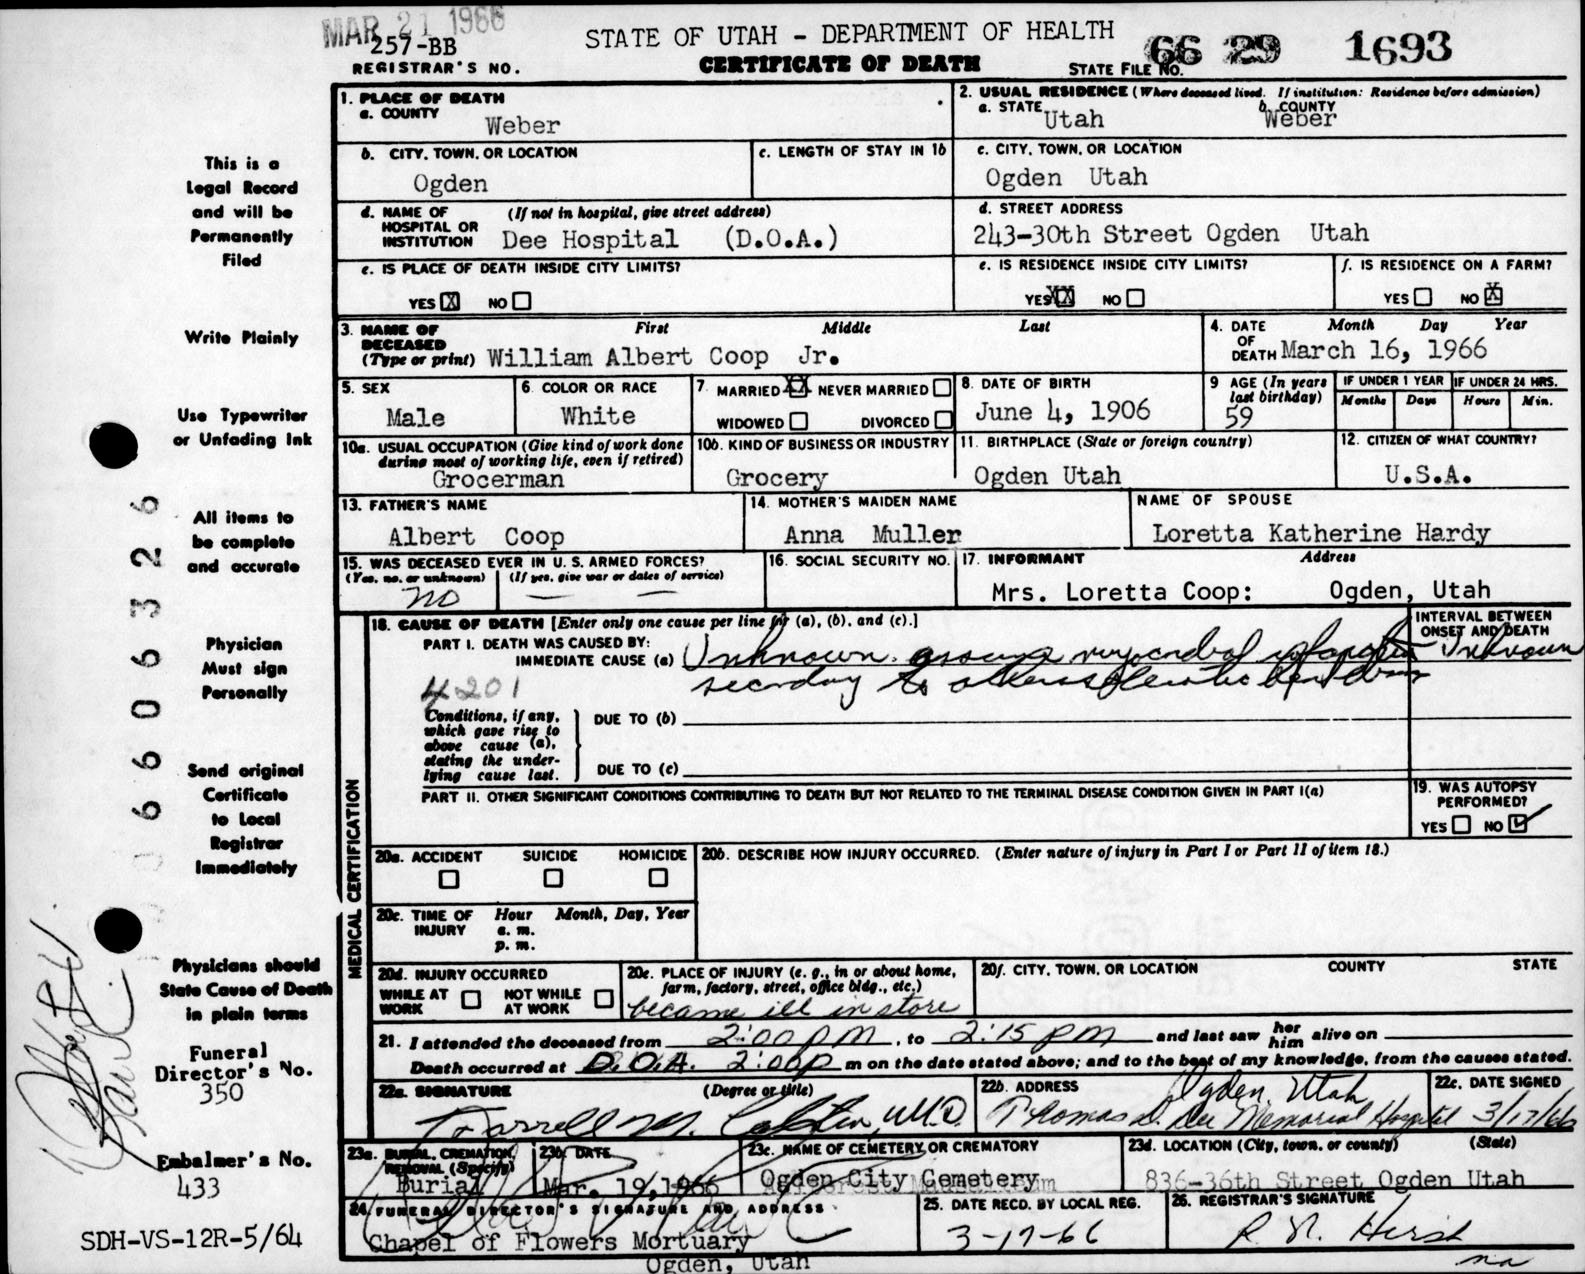 MAR 21 1966
257-BB
REGISTRAR'S NO.
STATE OF UTAH - DEPARTMENT OF HEALTH
CERTIFICATE OF DEATH
STATE FILE NO. 66 29 1693
This is a
Legal Record
and will be
Permanently
Filed
Write Plainly
Use Typewriter
or Unfading Ink
All items to
be complete
and accurate
Physician
Must sign
Personally
Send original
Certificate
to Local
Registrar
Immediately
Physicians should
State Cause of Death
in plain terms
Funeral
Director's No.
350
Embalmer's No.
433
SDH-VS-12R-5/64
6606326
1. PLACE OF DEATH
a. COUNTY
Weber
2. USUAL RESIDENCE (Where deceased lived. If institution: Residence before admission)
a. STATE Utah
b. COUNTY Weber
b. CITY, TOWN, OR LOCATION
Ogden
c. LENGTH OF STAY IN 1b
c. CITY, TOWN, OR LOCATION
Ogden Utah
d. NAME OF HOSPITAL OR INSTITUTION (If not in hospital, give street address)
Dee Hospital (D.O.A.)
d. STREET ADDRESS
243-30th Street Ogden Utah
e. IS PLACE OF DEATH INSIDE CITY LIMITS?
YES X NO
e. IS RESIDENCE INSIDE CITY LIMITS?
YES XX NO
f. IS RESIDENCE ON A FARM?
YES NO X
3. NAME OF DECEASED (Type or print)
First Middle Last
William Albert Coop Jr.
4. DATE OF DEATH
Month Day Year
March 16, 1966
5. SEX
Male
6. COLOR OR RACE
White
7. MARRIED XX NEVER MARRIED
WIDOWED DIVORCED
8. DATE OF BIRTH
June 4, 1906
9 AGE (In years last birthday)
59
IF UNDER 1 YEAR
Months Days
IF UNDER 24 HRS.
Hours Min.
10a. USUAL OCCUPATION (Give kind of work done during most of working life, even if retired)
Grocerman
10b. KIND OF BUSINESS OR INDUSTRY
Grocery
11. BIRTHPLACE (State or foreign country)
Ogden Utah
12. CITIZEN OF WHAT COUNTRY?
U.S.A.
13. FATHER'S NAME
Albert Coop
14. MOTHER'S MAIDEN NAME
Anna Muller
NAME OF SPOUSE
Loretta Katherine Hardy
15. WAS DECEASED EVER IN U. S. ARMED FORCES?
(Yes, no, or unknown) (If yes, give war or dates of service)
no — —
16. SOCIAL SECURITY NO.
17. INFORMANT Address
Mrs. Loretta Coop: Ogden, Utah
MEDICAL CERTIFICATION
18. CAUSE OF DEATH [Enter only one cause per line for (a), (b), and (c).]
INTERVAL BETWEEN ONSET AND DEATH
PART I. DEATH WAS CAUSED BY:
IMMEDIATE CAUSE (a) Unknown. myocardial infarction Unknown
secondary to
4201
Conditions, if any, which gave rise to above cause (a), stating the underlying cause last.
DUE TO (b)
DUE TO (c)
PART II. OTHER SIGNIFICANT CONDITIONS CONTRIBUTING TO DEATH BUT NOT RELATED TO THE TERMINAL DISEASE CONDITION GIVEN IN PART I(a)
19. WAS AUTOPSY PERFORMED?
YES NO ✓
20a. ACCIDENT SUICIDE HOMICIDE
20b. DESCRIBE HOW INJURY OCCURRED. (Enter nature of injury in Part I or Part II of item 18.)
20c. TIME OF INJURY Hour Month, Day, Year
a. m.
p. m.
20d. INJURY OCCURRED
WHILE AT WORK NOT WHILE AT WORK
20e. PLACE OF INJURY (e. g., in or about home, farm, factory, street, office bldg., etc.)
became ill in store
20f. CITY, TOWN, OR LOCATION COUNTY STATE
21. I attended the deceased from 2:00 pm, to 2:15 pm and last saw her him alive on
Death occurred at D.O.A. 2:00p m on the date stated above; and to the best of my knowledge, from the causes stated.
22a. SIGNATURE (Degree or title)
M.D.
22b. ADDRESS
Ogden, Utah
Thomas D. Dee Memorial Hospital
22c. DATE SIGNED
3/17/66
23a. BURIAL, CREMATION, REMOVAL (Specify)
Burial
23b. DATE
Mar. 19, 1966
23c. NAME OF CEMETERY OR CREMATORY
Ogden City Cemetery
23d. LOCATION (City, town, or county) (State)
836-36th Street Ogden Utah
24. FUNERAL DIRECTOR'S SIGNATURE AND ADDRESS
Chapel of Flowers Mortuary
Ogden, Utah
25. DATE RECD. BY LOCAL REG.
3-17-66
26. REGISTRAR'S SIGNATURE
R. N. Hirst
na